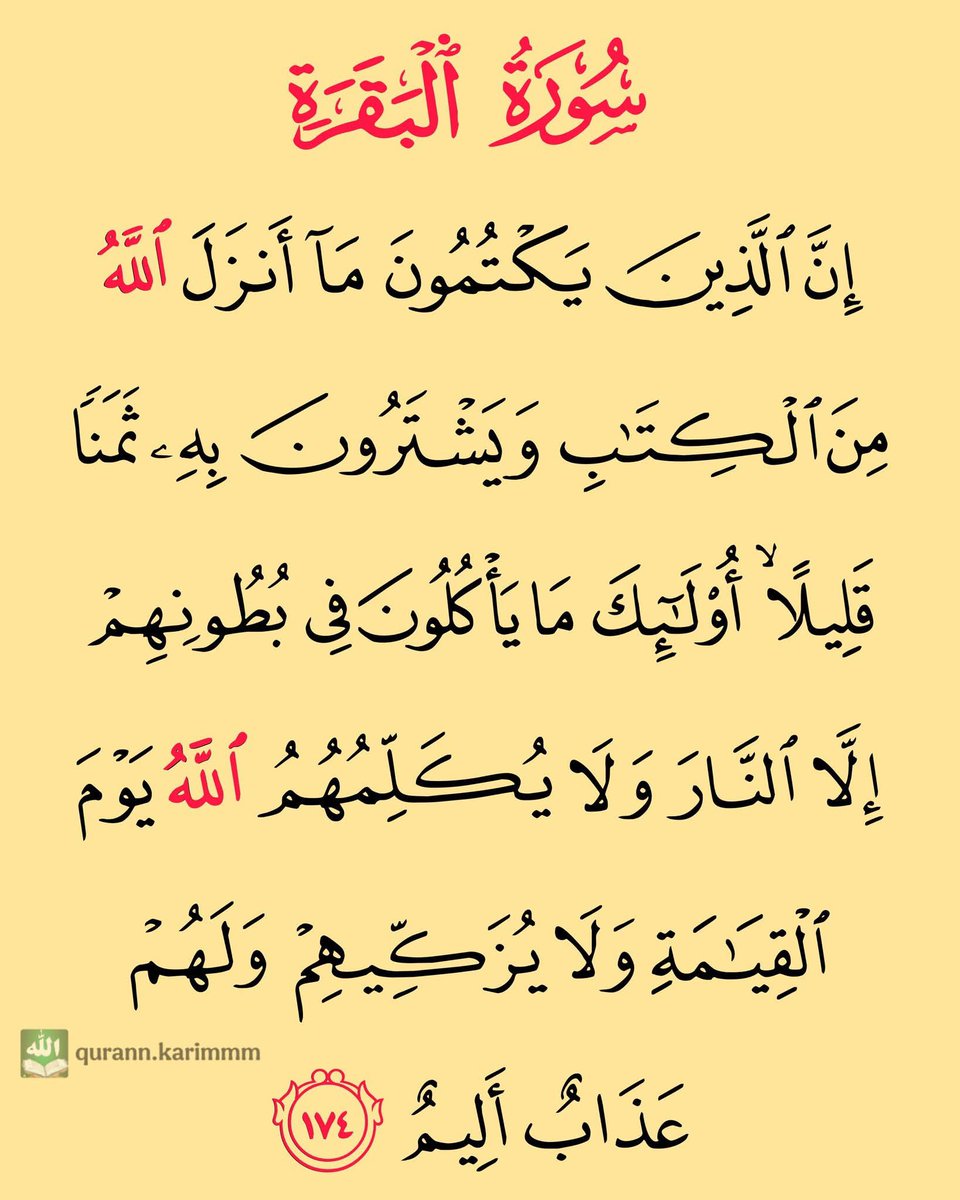 سُورَةُ ٱلْبَقَرَةِ
إِنَّ ٱلَّذِينَ يَكْتُمُونَ مَآ أَنزَلَ ٱللَّهُ
مِنَ ٱلْكِتَٰبِ وَيَشْتَرُونَ بِهِۦ ثَمَنًا
قَلِيلًا ۙ أُو۟لَٰٓئِكَ مَا يَأْكُلُونَ فِى بُطُونِهِمْ
إِلَّا ٱلنَّارَ وَلَا يُكَلِّمُهُمُ ٱللَّهُ يَوْمَ
ٱلْقِيَٰمَةِ وَلَا يُزَكِّيهِمْ وَلَهُمْ
الله qurann.karimmm
عَذَابٌ أَلِيمٌ ١٧٤